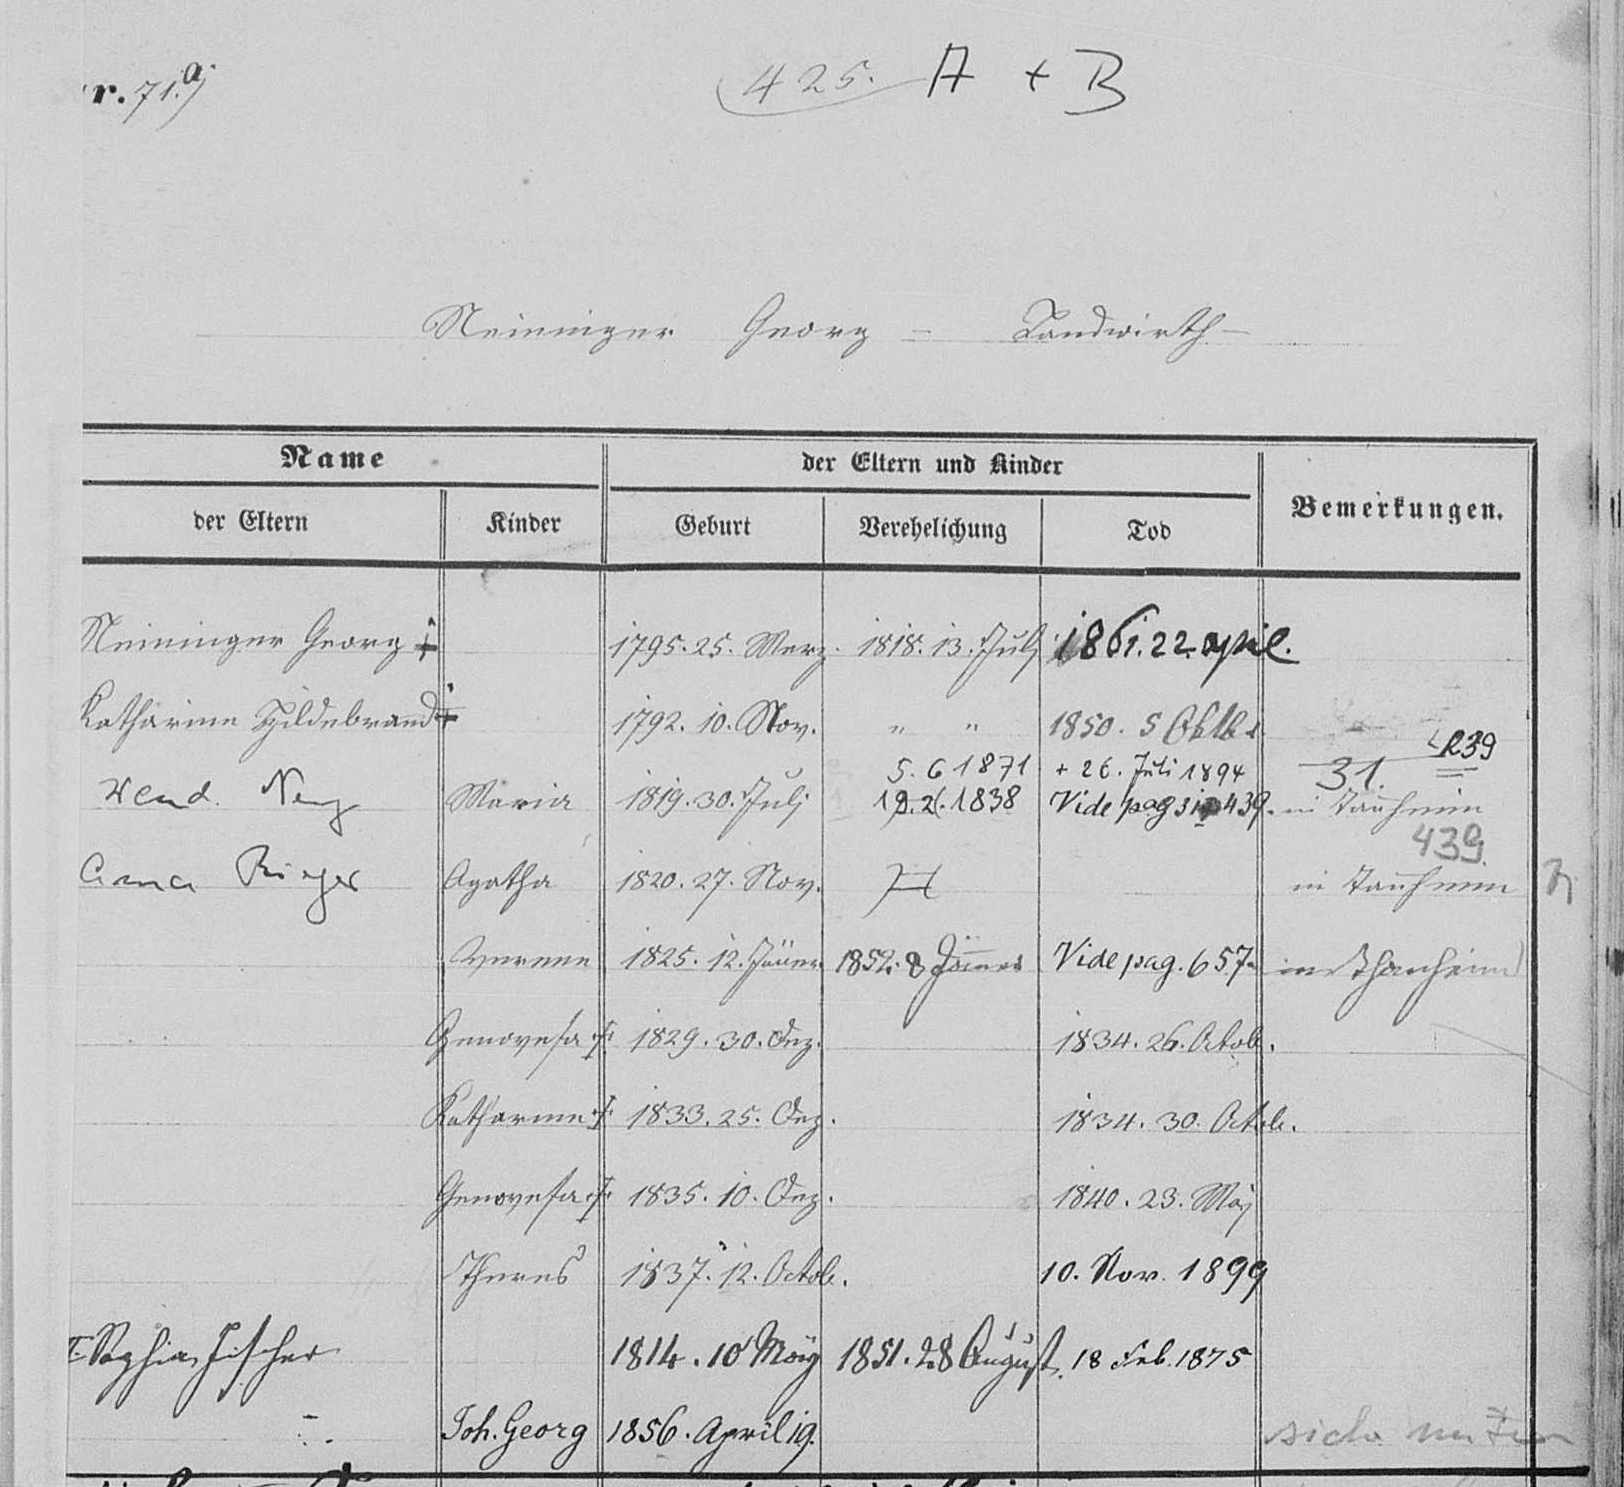 r. 71.a)
425. A + B
Neininger Georg – Landwirth –
Name
der Eltern und Kinder
Bemerkungen.
der Eltern
Kinder
Geburt
Verehelichung
Tod
Neininger Georg † 1795. 25. Merz. 1818. 13. Julj 1861. 22. april.
Katharina Hildebrand † 1792. 10. Nov. " " 1850. 5 Oktb
5. 6 1871 + 26. Juli 1894 31. 239
Maria 1819. 30. Julj 1838 Vide pag 439. in Tanheim
439
Anna Rieger Agatha 1820. 27. Nov. in Tanheim
Verena 1825. 12. Jäner 1852. 8 Jänner Vide pag. 657 in Thanheim
Genovefa † 1829. 30. Dez. 1834. 26. Octob.
Katharina † 1833. 25. Dez. 1834. 30. Octob.
Genovefa † 1835. 10. Dez. 1840. 23. Maj
Theres 1837. 12. Octob. 10. Nov. 1899
Sophia Fischer 1814. 10 Maÿ 1851. 28 August. 18 Feb. 1875
Joh. Georg 1856. April 19.